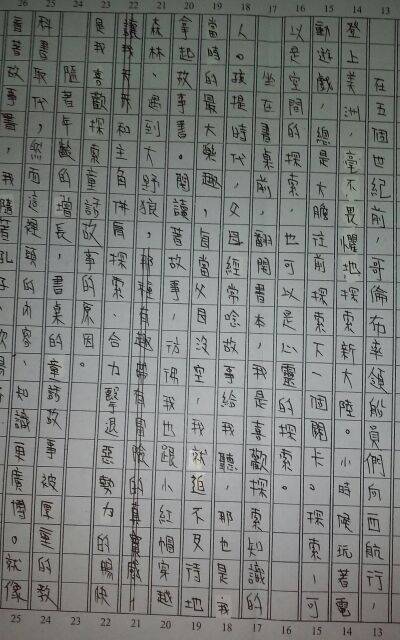 在五個世紀前，哥倫布率領船員們向西航行，
登上美洲，毫不畏懼地探索新大陸。小時候玩著電
動遊戲，總是大膽往前探索下一個關卡。探索，可
以是空間的探索，也可以是心靈的探索。
坐在書桌前，翻開書本，我是喜歡探索知識的
人。孩提時代，父母經常唸故事給我聽，那也是我
當時的最大樂趣，當父母沒空，我就迫不及待地
拿起故事書。閱讀著故事，彷彿我也跟小紅帽穿越
森林，遇到大野狼，那種有趣帶有冒險的真實感
讓我和主角併肩探索，合力擊退惡勢力的暢快
是我喜歡探索童話故事的原因。
隨著年齡的增長，書桌的童話故事被厚重的教
科書取代，然而這裡頭的內容，知識更廣博。就像
看故事書，我隨著孔子